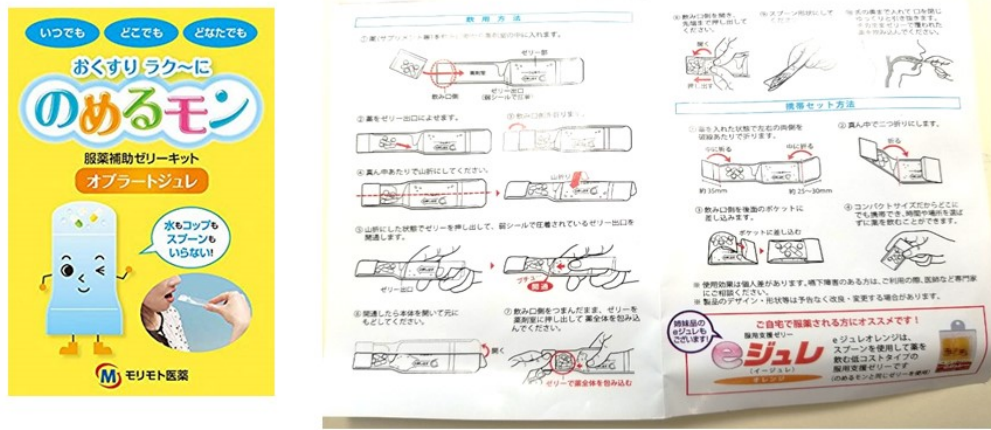 いつでも
どこでも
どなたでも
おくすり ラク〜に
のめるモン
服薬補助ゼリーキット
オブラートジュレ
水もコップも
スプーンも
いらない!
モリモト医薬
飲用方法
ゼリー部
薬剤室
飲み口側
ゼリー出口
(弱シールで圧着)
②薬をゼリー出口によせます。
④真ん中あたりで山折にしてください。
山折り
⑤山折にした状態でゼリーを押し出して、弱シールで圧着されているゼリー出口を
開通します。
ゼリー出口
プチュ
開通
⑥開通したら本体を開いて元に
もどしてください。
開く
⑦飲み口側をつまんだまま、ゼリーを
薬剤室に押し出して 薬全体を包み込
んでください。
ゼリーで薬全体を包み込む
⑧飲み口側を開き、
先端まで押し出して
ください。
開く
押し出す
携帯セット方法
①薬を入れた状態で左右の両側を
破線あたりで折ります。
中に折る
中に折る
約35mm
約25〜30mm
②真ん中で二つ折りにします。
折る
③飲み口側を後面のポケットに
差し込みます。
ポケットに差し込む
④コンパクトサイズだからどこに
でも携帯でき、時間や場所を選ば
ずに薬を飲むことができます。
※使用効果は個人差があります。嚥下障害のある方は、ご利用の際、医師など専門家
にご相談ください。
※製品のデザイン・形状等は予告なく改良・変更する場合があります。
姉妹品の
eジュレも
ございます!
ご自宅で服薬される方にオススメです!
服用支援ゼリー
eジュレ
(イージュレ)
オレンジ
eジュレオレンジは、
スプーンを使用して薬を
飲む低コストタイプの
服用支援ゼリーです
(のめるモンと同じゼリーを使用)